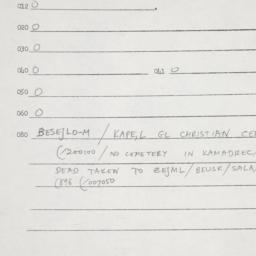 012 O
020 O
030 O
040 O 041 O
050 O
060 O
080 BESEJLO-M / KAPEJL GL CHRISTIAN CE
(1200100 / NO CEMETERY IN KAMADREC,
DEAD TAKEN TO BEJML/BEUSE/SALA
(896 (1007050